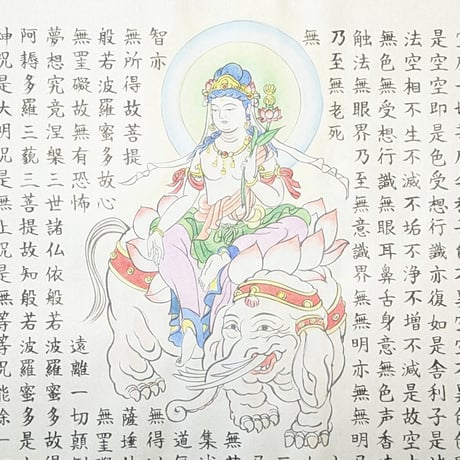 是空空即是色受想行識亦復如是舎利子是
法空相不生不滅不垢不浄不増不減是故空
無色無受想行識無眼耳鼻舌身意無色声香
触法無眼界乃至無意識界無無明亦無無明
乃至無老死
無
無
集
道
智亦
無得
無所得故菩提
薩埵
般若波羅蜜多故心
無罣
無罣礙故無有恐怖
遠離一切顛
夢想究竟涅槃三世諸仏依般若波羅蜜多故得
阿耨多羅三藐三菩提故知般若波羅蜜多是
神呪是大明呪是無上呪是無等等呪能除一